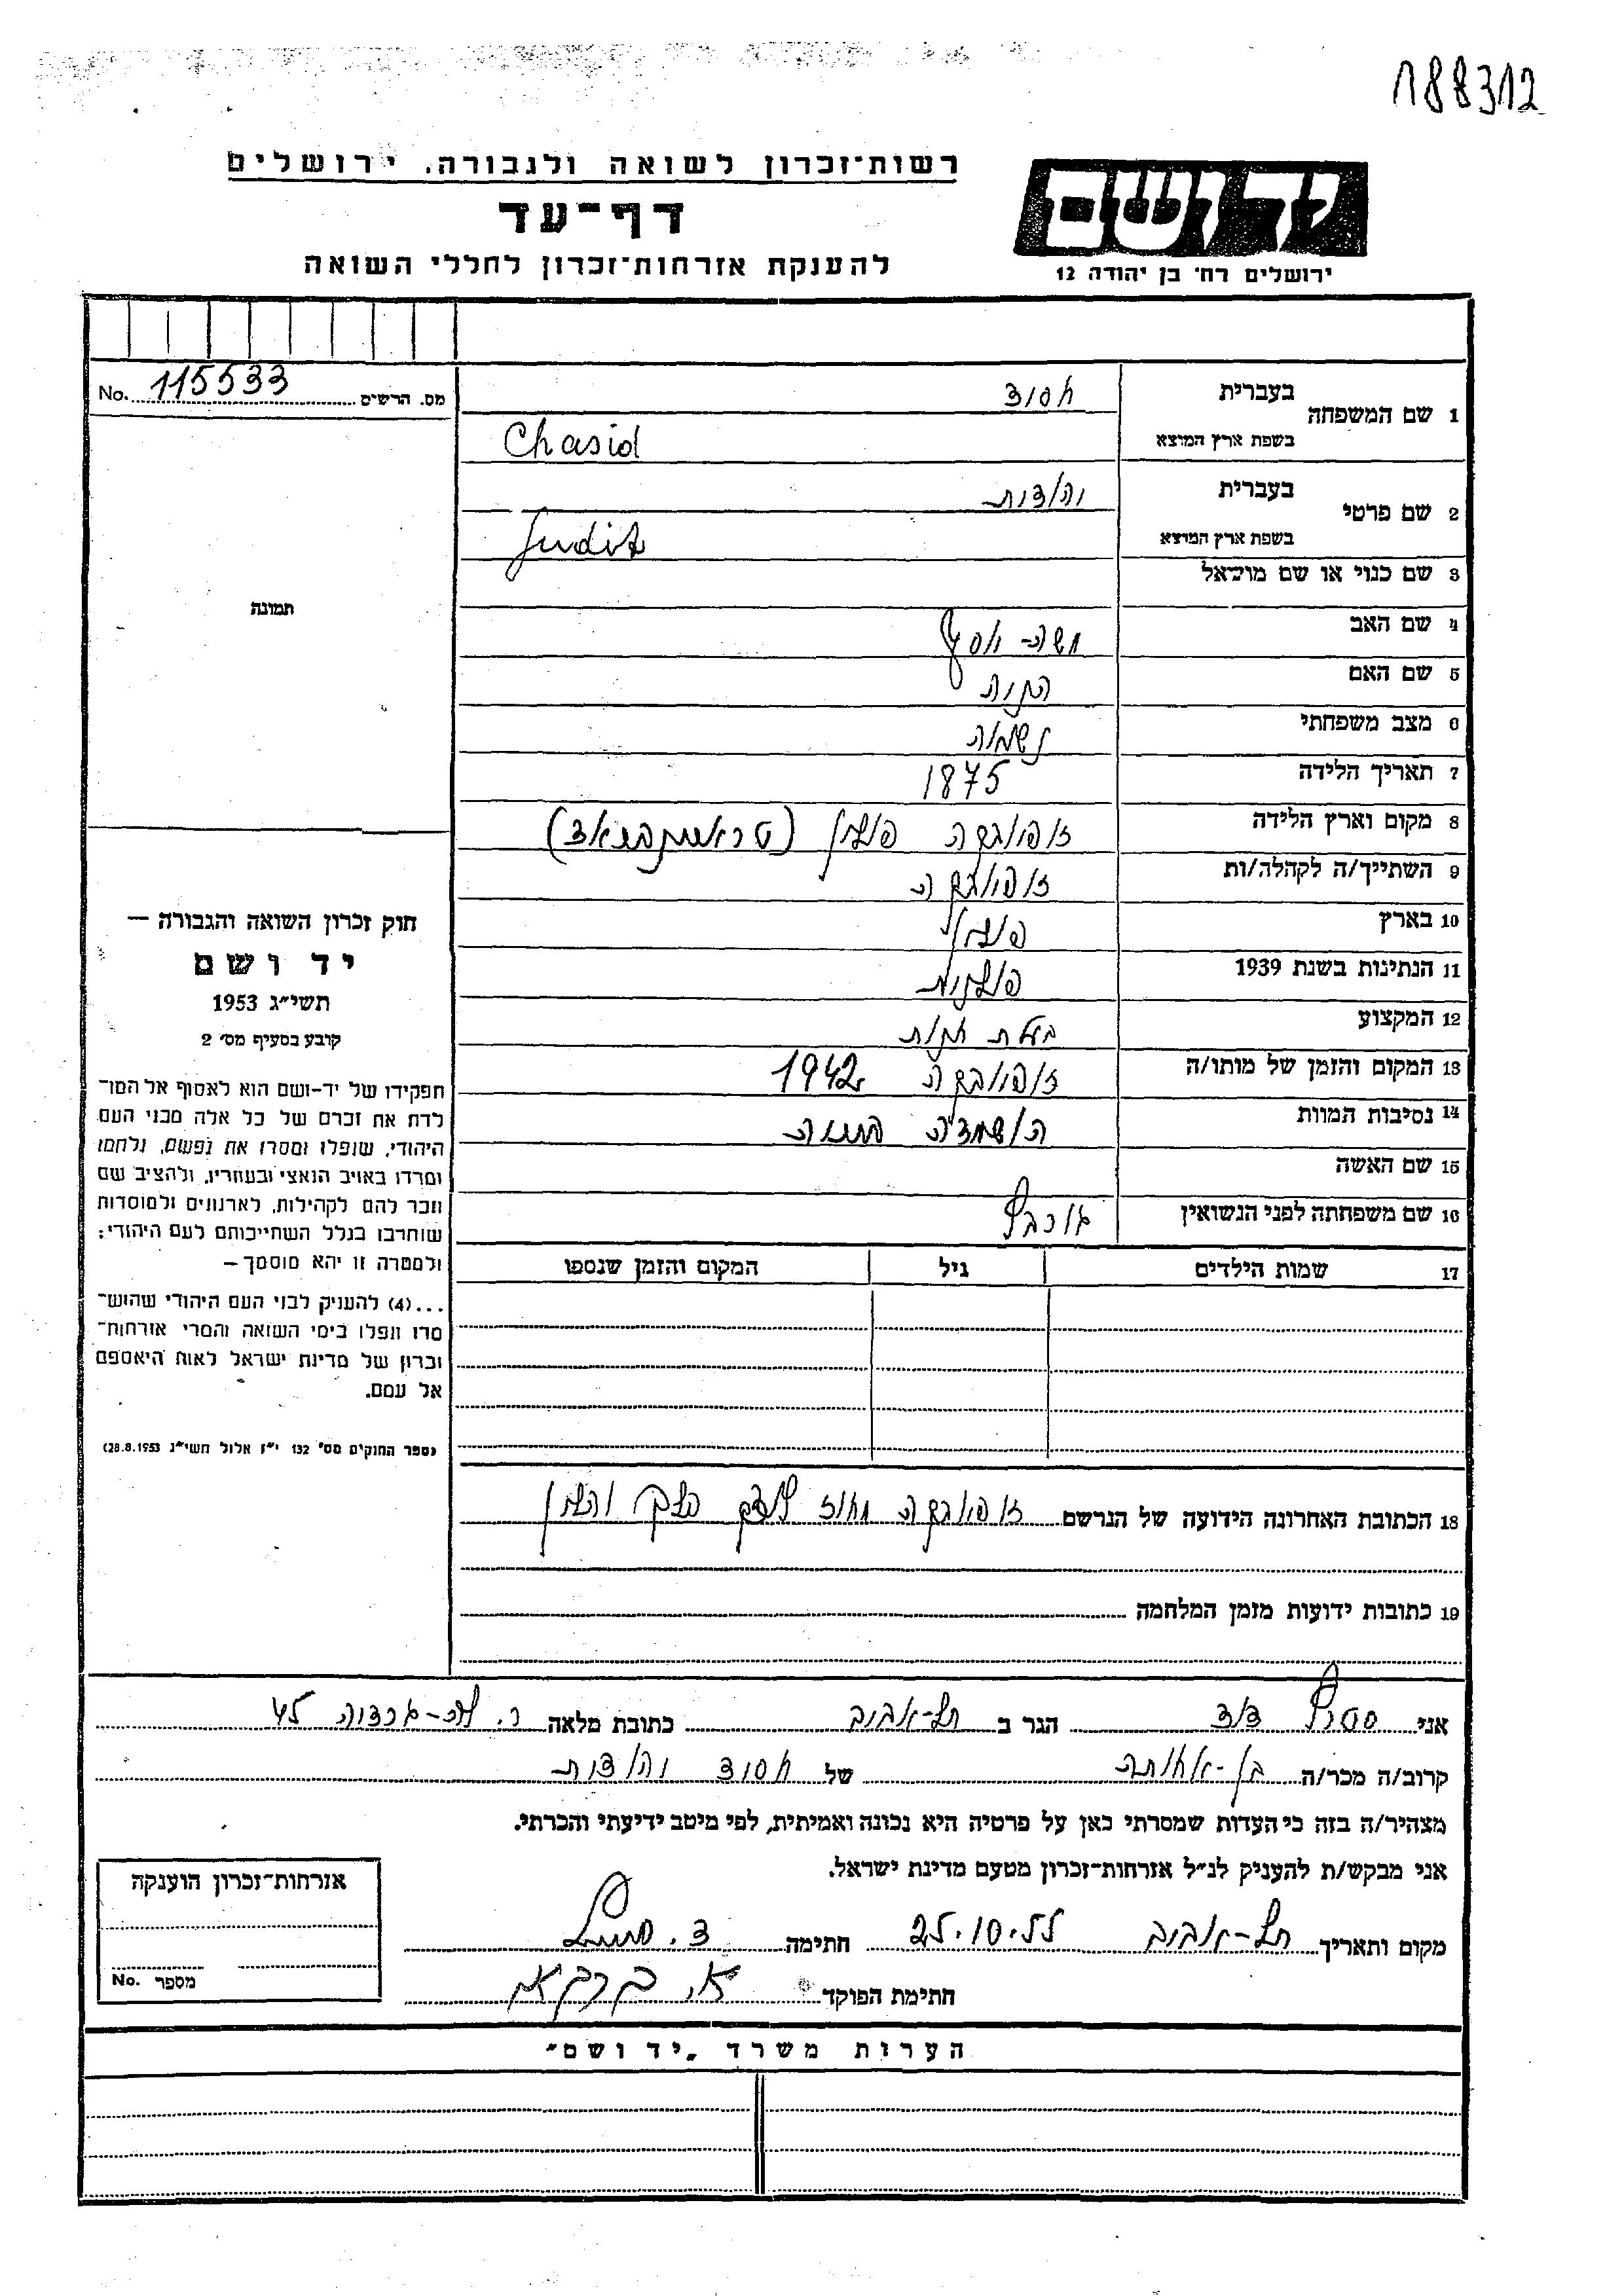 188312
רשות־זכרון לשואה ולגבורה. ירושלים
דף־עד
להענקת אזרחות־זכרון לחללי השואה
ידושם
ירושלים רח׳ בן יהודה 12
No. 115533 מס. הרשים
1 שם המשפחה
בעברית חסיד
בשפת ארץ המוצא Chasid
2 שם פרטי
בעברית יהודית
בשפת ארץ המוצא Judit
3 שם כנוי או שם מושאל
4 שם האב משה־יוסף
5 שם האם
6 מצב משפחתי נשואה
7 תאריך הלידה 1875
8 מקום וארץ הלידה פולין
9 השתייך/ה לקהלה/ות
10 בארץ פולין
11 הנתינות בשנת 1939 פולנית
12 המקצוע בעלת חנות
13 המקום והזמן של מותו/ה 1942
14 נסיבות המוות
15 שם האשה
16 שם משפחתה לפני הנשואין
17 שמות הילדים גיל המקום והזמן שנספו
18 הכתובת האחרונה הידועה של הנרשם
19 כתובות ידועות מזמן המלחמה
תמונה
חוק זכרון השואה והגבורה —
יד ושם
תשי״ג 1953
קובע בסעיף מס׳ 2
תפקידו של יד-ושם הוא לאסוף אל המו־
לדת את זכרם של כל אלה מבני העם
היהודי, שנפלו ומסרו את נפשם, נלחמו
ומרדו באויב הנאצי ובעוזריו, ולהציב שם
וזכר להם לקהילות, לארגונים ולמוסדות
שוחרבו בגלל השתייכותם לעם היהודי;
ולמטרה זו יהא מוסמך —
...(4) להעניק לבני העם היהודי שהוש־
מדו ונפלו בימי השואה והמרי אזרחות־
זכרון של מדינת ישראל לאות היאספם
אל עמם.
(ספר החוקים מס׳ 132 י״ז אלול תשי״ג 28.8.1953)
אני דוד הגר ב תל-אביב כתובת מלאה
קרוב/ה מכר/ה בן-אחותה של חסיד יהודית
מצהיר/ה בזה כי העדות שמסרתי כאן על פרטיה היא נכונה ואמיתית, לפי מיטב ידיעתי והכרתי.
אני מבקש/ת להעניק לנ״ל אזרחות־זכרון מטעם מדינת ישראל.
מקום ותאריך תל-אביב 25.10.55 חתימה
חתימת הפוקד
אזרחות־זכרון הוענקה
No. מספר
הערות משרד „יד ושם״